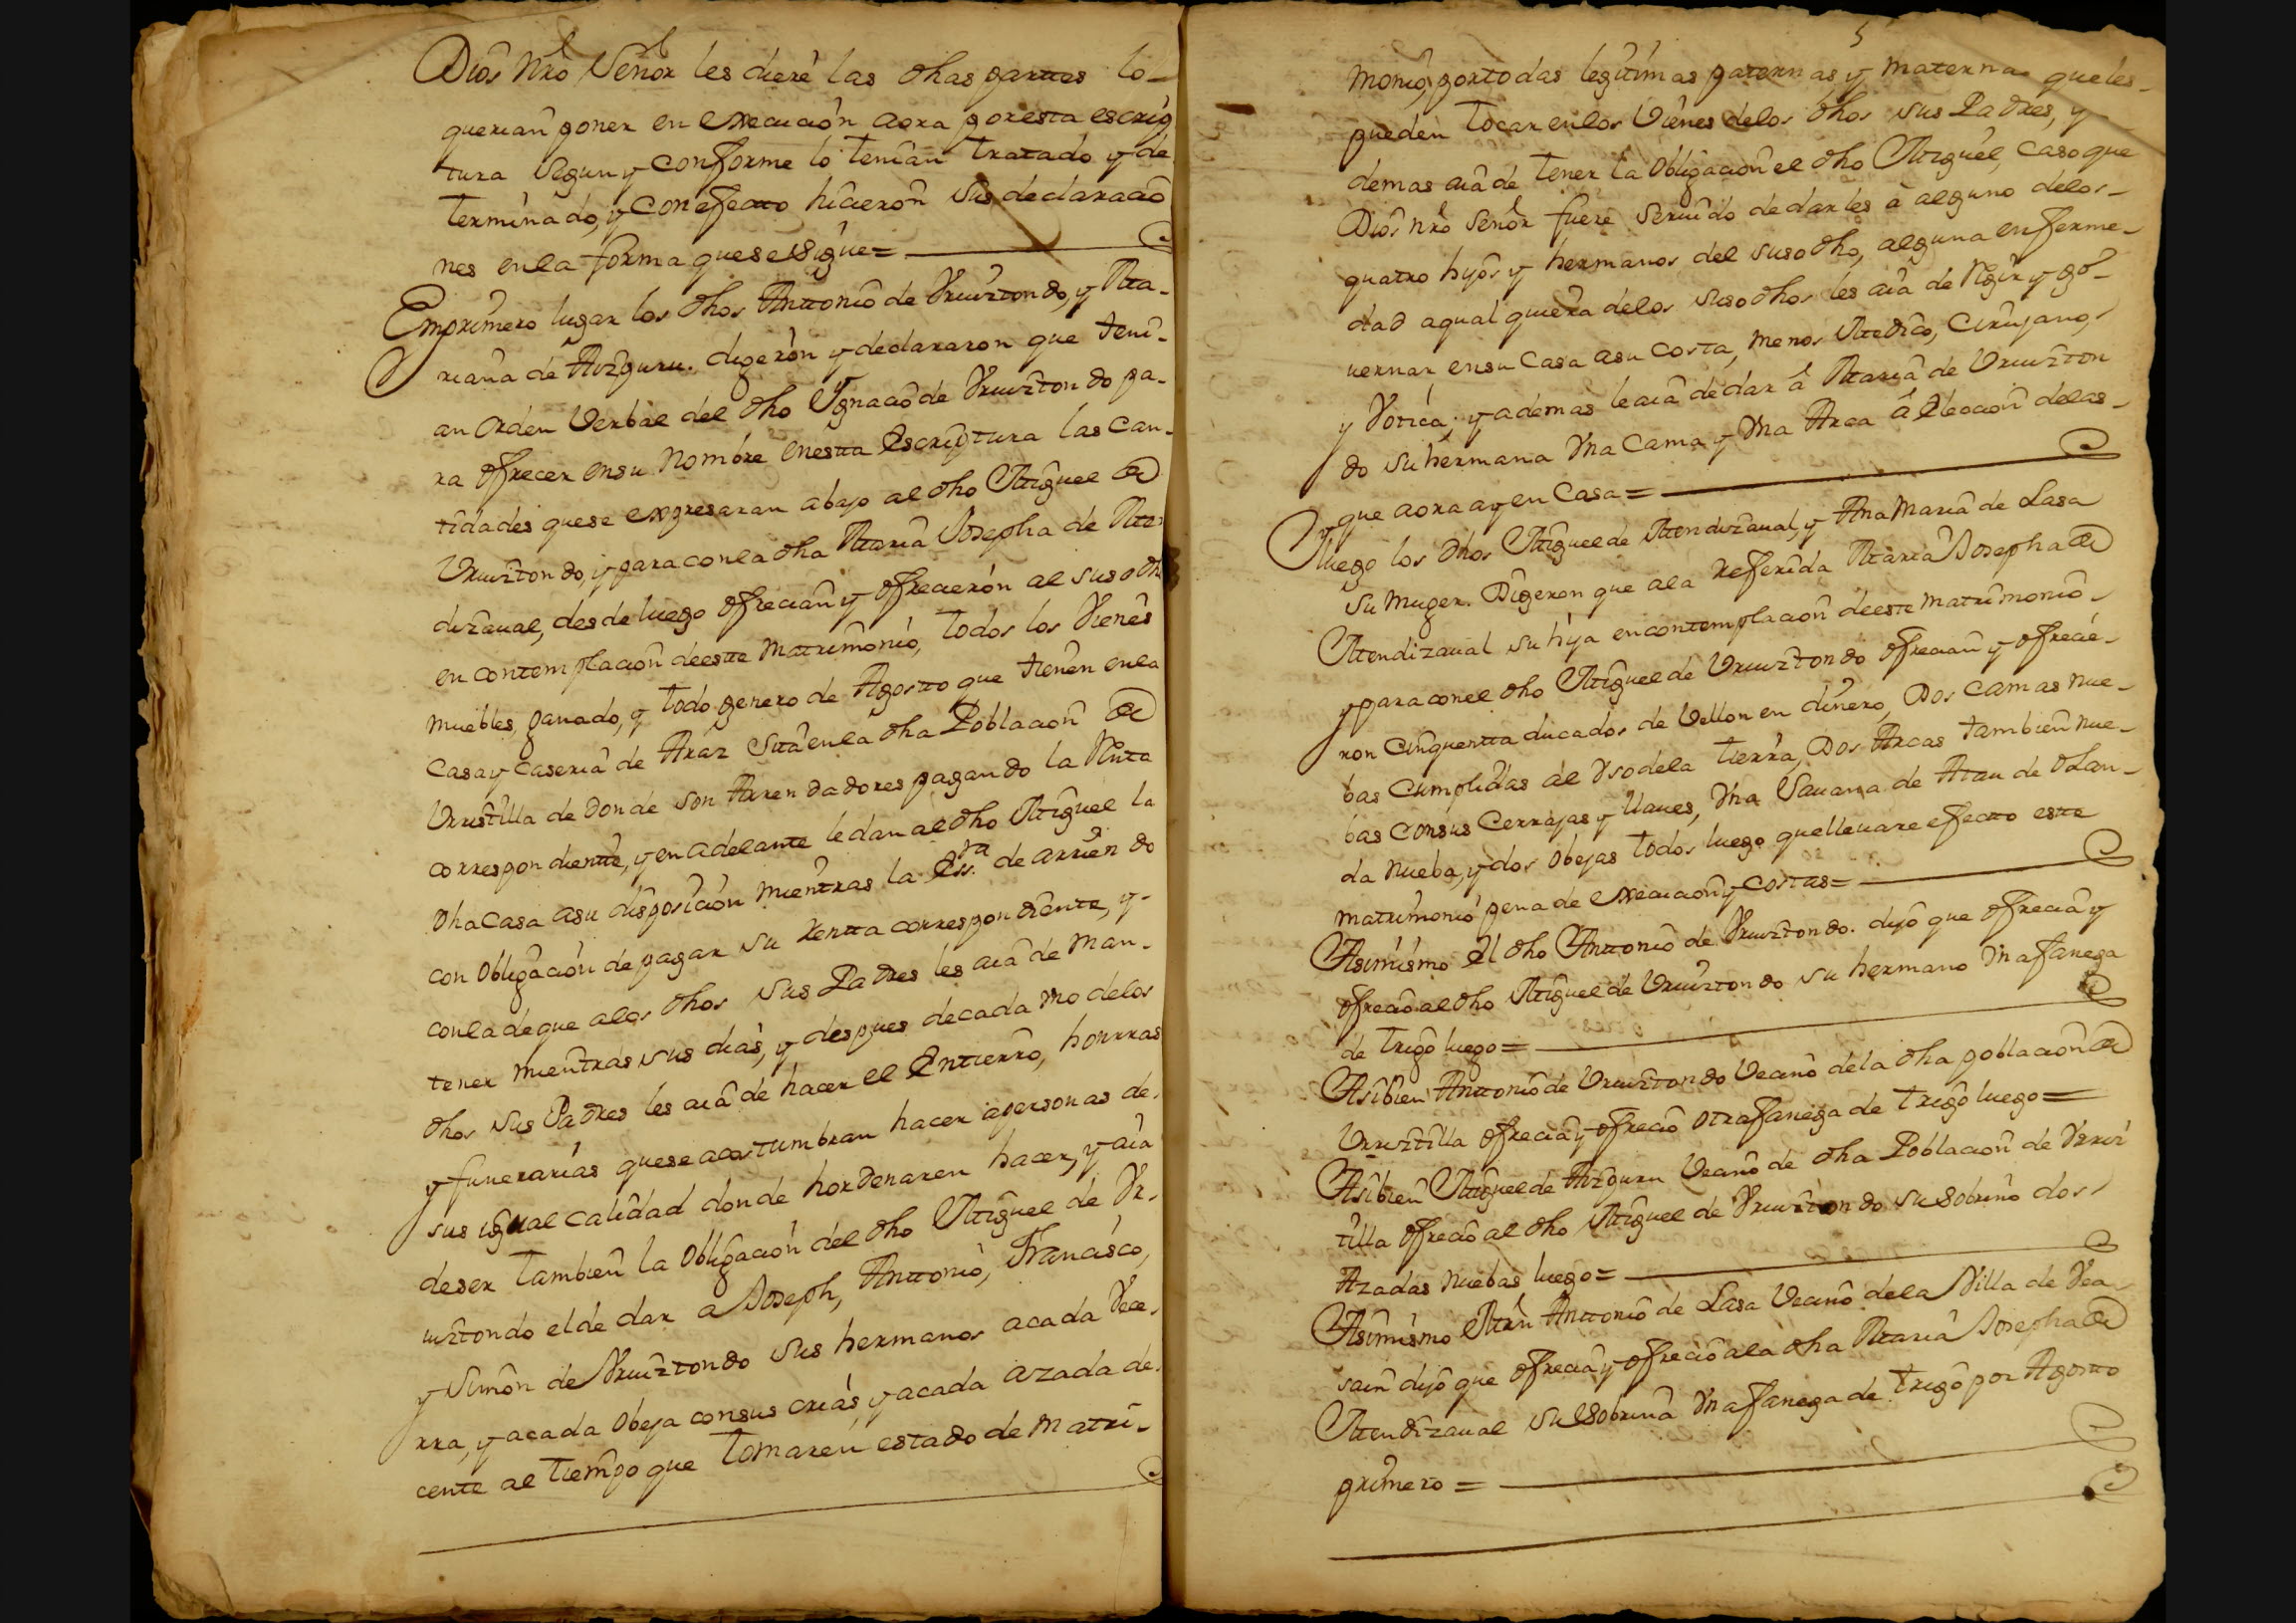 Dios nrõ Señor les dieré las dhas parttes lo-
querian poner en execucion aora por esta escrip
tura segun y conforme lo tenian tratado y de
terminado, y con efectto hicieron sus declaracio
nes en la forma que se sigue =
Emprimero lugar los dhos Anttonio de Vruiztondo, y Ma-
riana de Aizguru. digeron y declararon que teni-
an orden verbal del dho Ygnacio de Vruiztondo pa-
ra ofrecer en su nombre en estta Escriptura las can-
tidades que se expresaran abajo al dho Miguel de
Vruiztondo, y para con la dha Maria Josepha de Men
dizaual, desde luego ofrecian y ofrecieron al suso dho
en contemplacion de estte Matrimonio, todos los vienes
muebles, ganado, y todo genero de Agostto que tienen en la
Casa y caseria de Araz sitta en la dha Poblacion de
Vrrestilla de donde son Arrendadores pagando la Rentta
correspondientte, y en adelante le dan al dho Miguel la
dha Casa a su disposicion mientras la Ess.ra de arriendo
con obligacion de pagar su rentta correspondiente, y-
con la de que a los dhos sus Padres les aia de man-
tener mientras sus dias, y despues de cada vno de los
dhos sus Padres les aia de hacer el Entierro, honrras
y funerarias que se acostumbran hacer a personas de
sus igual calidad donde hordenaren hacer, y aia
de ser tambien la obligacion del dho Miguel de Vr-
uiztondo el de dar a Joseph, Anttonio, Francisco,
y Simon de Vruiztondo sus hermanos a cada Vece-
rra, y a cada obeja con sus crias, y a cada azada de-
cente al tiempo que tomaren estado de Matri-
5
monio, por todas legitimas paternas y maternas que les-
pueden tocar en los vienes de los dhos sus Padres, y-
demas aia de tener la obligacion el dho Miguel, caso que
Dios nrõ Señor fuere seruido de darles à alguno de los-
quatro hijos y hermanos del suso dho, alguna enferme-
dad a qual quiera de los suso dhos les aia de Regir y go-
uernar en su Casa a su costa, menos Medico, Cirujano,
y Votica; y ademas le aia de dar â Maria de Vruizton
do su hermana Vna Cama y Vna Arca â Eleccion de las-
que aora ay en Casa =
Y luego los dhos Miguel de Mendizaual, y Ana Maria de Lasa
su Muger. Digeron que a la referida Maria Josepha de
Mendizaual su hija en contemplacion de este matrimonio-
y para con el dho Miguel de Vruiztondo ofrecian y ofrecie-
ron cinquentta ducados de Vellon en dinero, Dos camas nue-
bas cumplidas al Vso de la tierra, Dos Arcas tambien nue-
bas con sus Cerrajas y llaues, Vna Sauana de Atau de oLan-
da nueba, y dos obejas todos luego que lleuare efectto estte
matrimonio pena de execucion y costas =
Asimismo El dho Anttonio de Vruiztondo. dijo que ofrecia y
ofrecio al dho Miguel de Vruiztondo su hermano Vna fanega
de trigo luego =
Asibien Anttonio de Vruiztondo Vecino de la dha poblacion de
Vrrestilla ofrecia y ofrecio otra fanega de trigo luego =
Asibien Miguel de Aizguru Vecino de dha Poblacion de Vrres
tilla ofrecio al dho Miguel de Vruiztondo su sobrino dos
Azadas nuebas luego =
Asimismo Mrñ Anttonio de Lasa Vecino de la Villa de Vea
sain dijo que ofrecia y ofrecio a la dha Maria Josepha de
Mendizaual su sobrina Vna fanega de trigo por Agostto
primero =